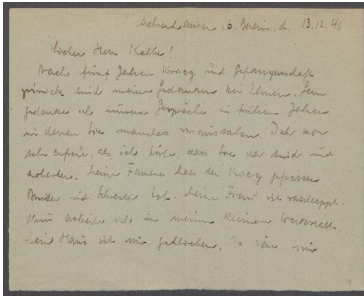 b. Berlin, d. 13.12.46
Lieber Herr Kolbe!
Nach fünf Jahren Krieg und Gefangenschaft
zurück sind meine Gedanken bei Ihnen. Ich
gedenke der unserer Gespräche in frühen Jahren
in denen Sie manches voraussahen. Ich war
sehr erfreut, als ich hörte, dass Sie da sind und
arbeiten. Meine Familie hat der Krieg gefressen
Bruder und Schwester tot. Meine Frau ist verschleppt.
Nun arbeite ich in meiner kleinen Werkstatt.
Mein Haus ist mir geblieben. So